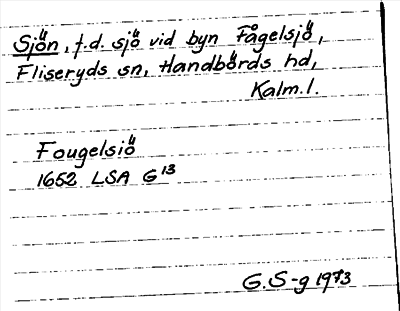 Sjön, f.d. sjö vid byn Fågelsjö,
Fliseryds sn, Handbörds hd,
Kalm.l.
Fougelsiö
1652 LSA G13
G.S-g 1973